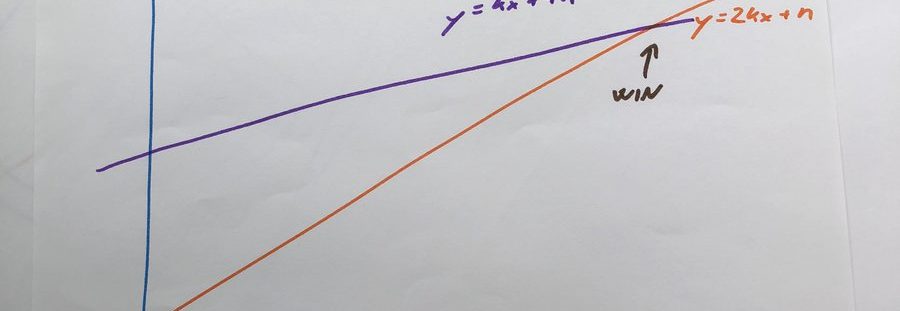 y = kx +
y = 2kx + n
WIN